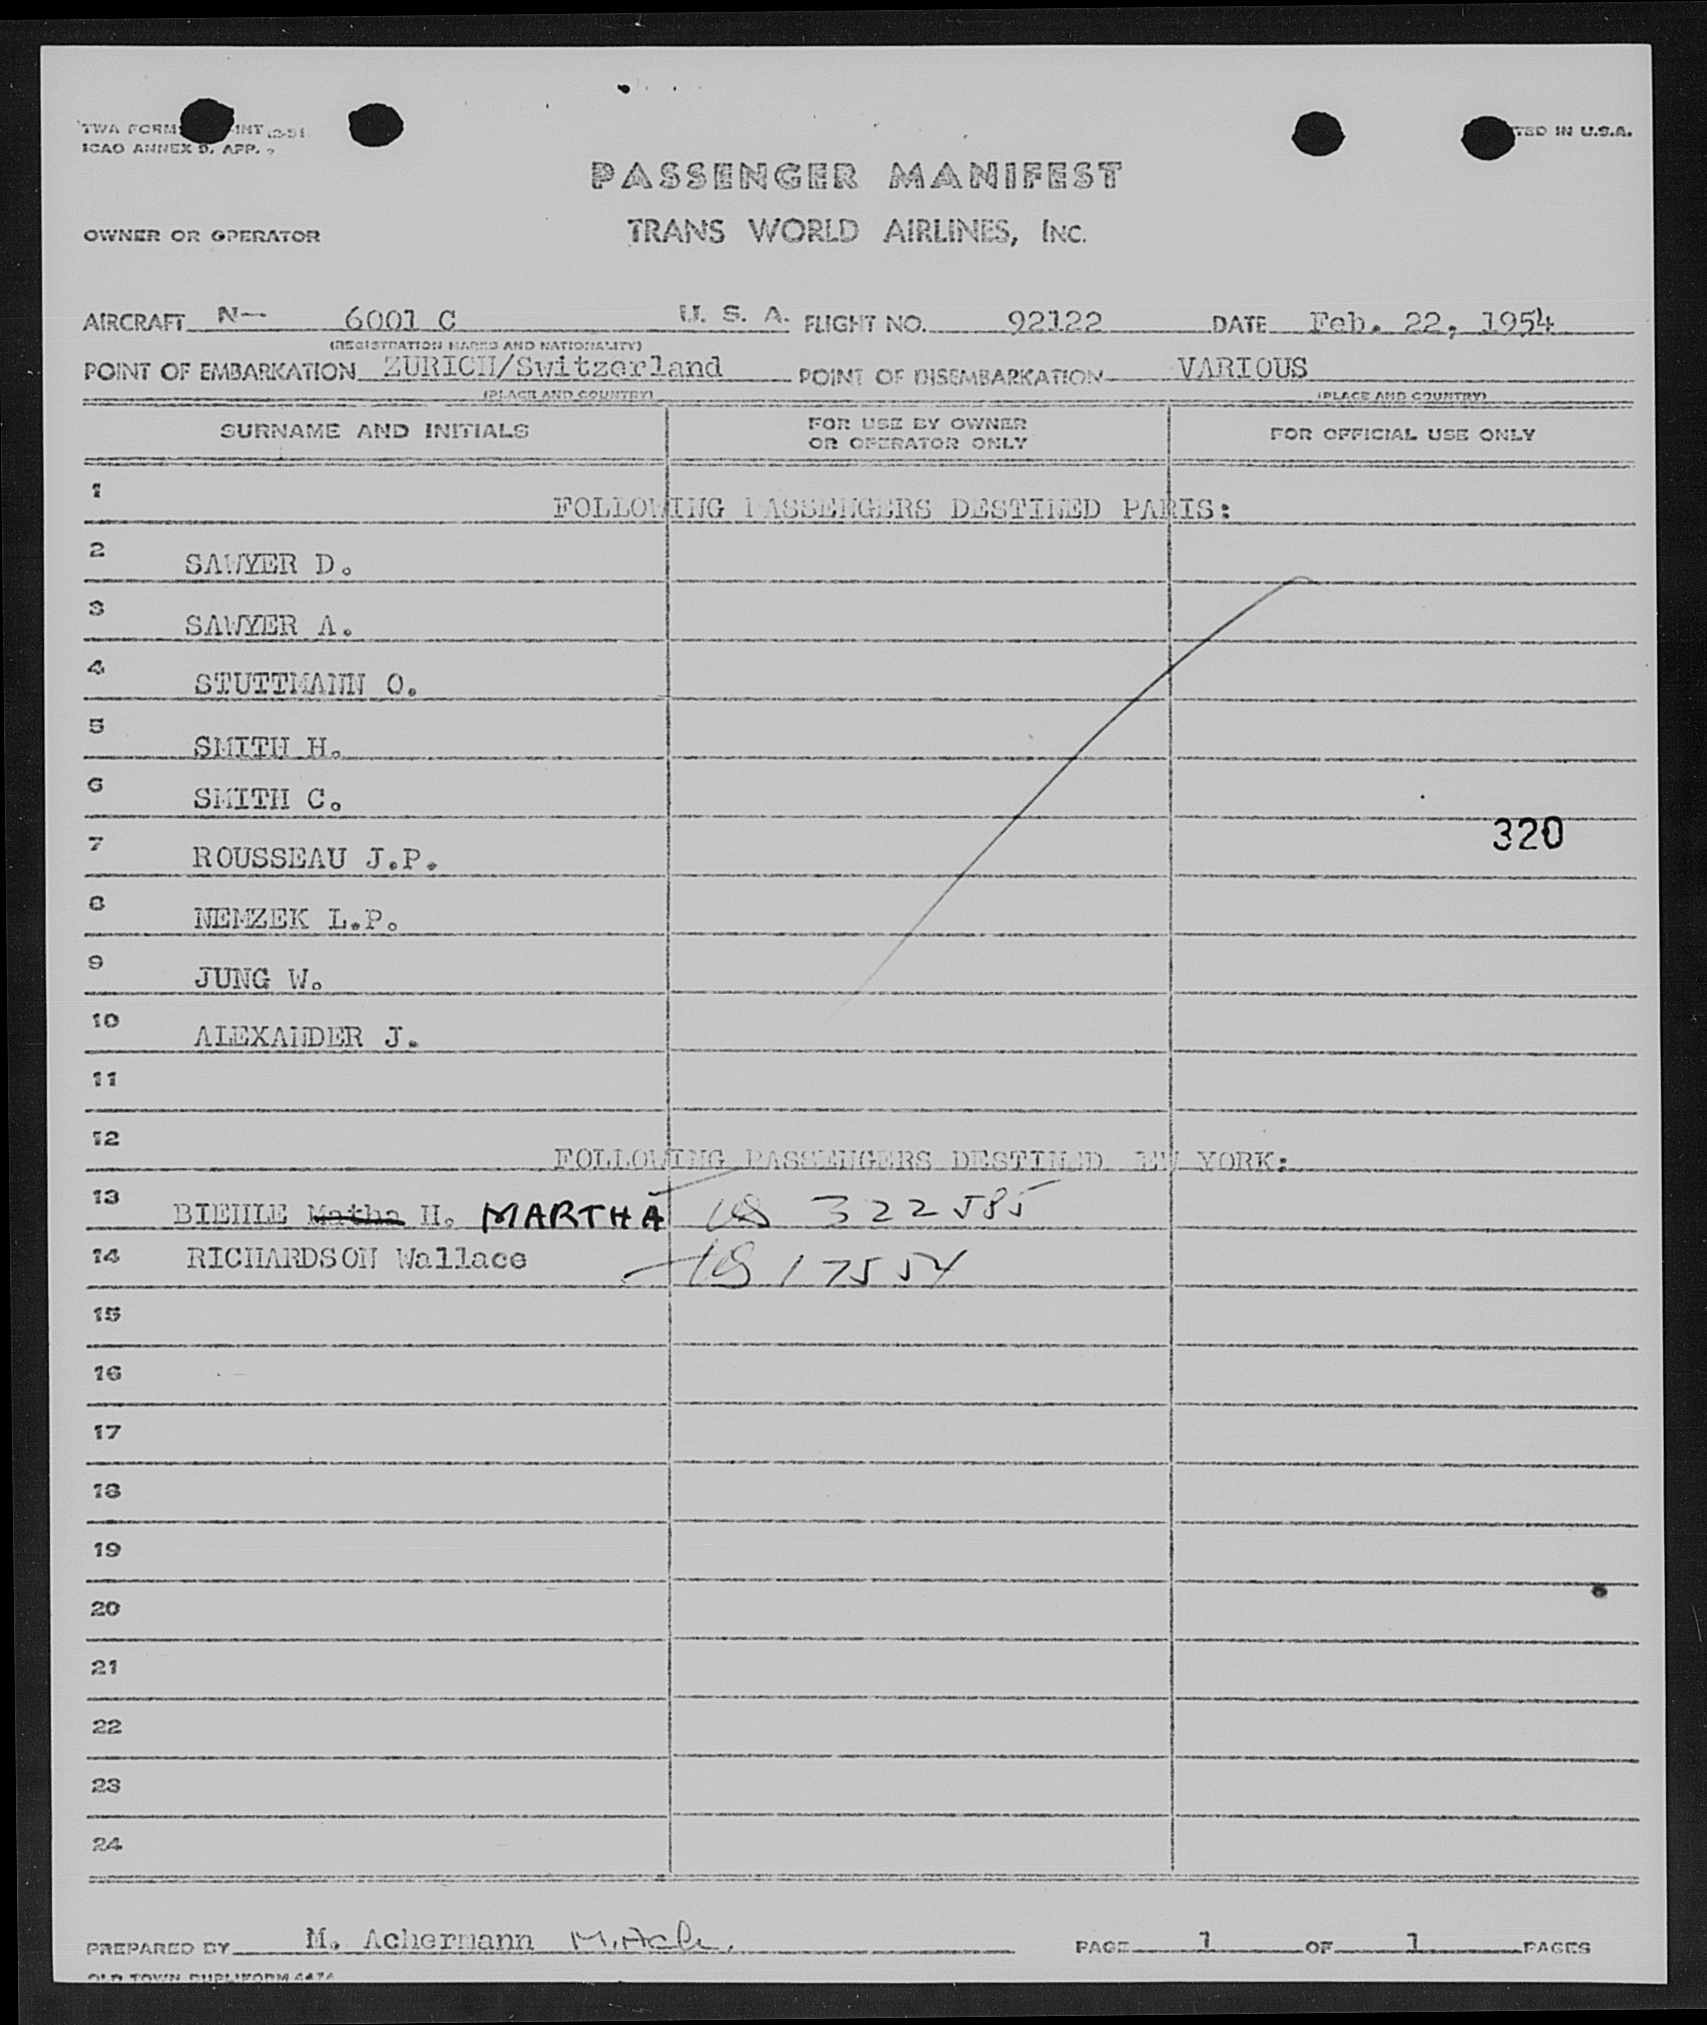 TWA FORM INT 12-51
ICAO ANNEX 9. APP.
TED IN U.S.A.
PASSENGER MANIFEST
OWNER OR OPERATOR
TRANS WORLD AIRLINES, INC.
AIRCRAFT N— 6001 C U. S. A. FLIGHT NO. 92122 DATE Feb. 22, 1954
(REGISTRATION MARKS AND NATIONALITY)
POINT OF EMBARKATION ZURICH/Switzerland POINT OF DISEMBARKATION VARIOUS
(PLACE AND COUNTRY) (PLACE AND COUNTRY)
SURNAME AND INITIALS FOR USE BY OWNER OR OPERATOR ONLY FOR OFFICIAL USE ONLY
1 FOLLOWING PASSENGERS DESTINED PARIS:
2 SAWYER D.
3 SAWYER A.
4 STUTTMANN O.
5 SMITH H.
6 SMITH C.
320
7 ROUSSEAU J.P.
8 NEMZEK L.P.
9 JUNG W.
10 ALEXANDER J.
11
12 FOLLOWING PASSENGERS DESTINED NEW YORK:
13 BIEHLE Matha H. MARTHA US 322585
14 RICHARDSON Wallace US 17554
15
16
17
18
19
20
21
22
23
24
PREPARED BY M. Achermann M. Ach. PAGE 1 OF 1 PAGES
OLD TOWN DUPLIFORM